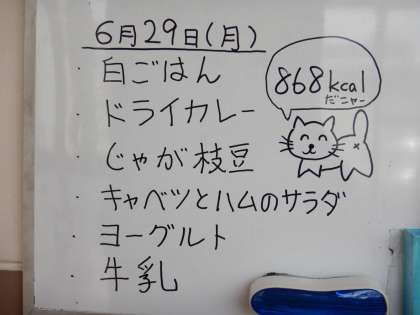 6月29日(月)
・白ごはん
・ドライカレー
・じゃが枝豆
・キャベツとハムのサラダ
・ヨーグルト
・牛乳
868kcal
だニャー